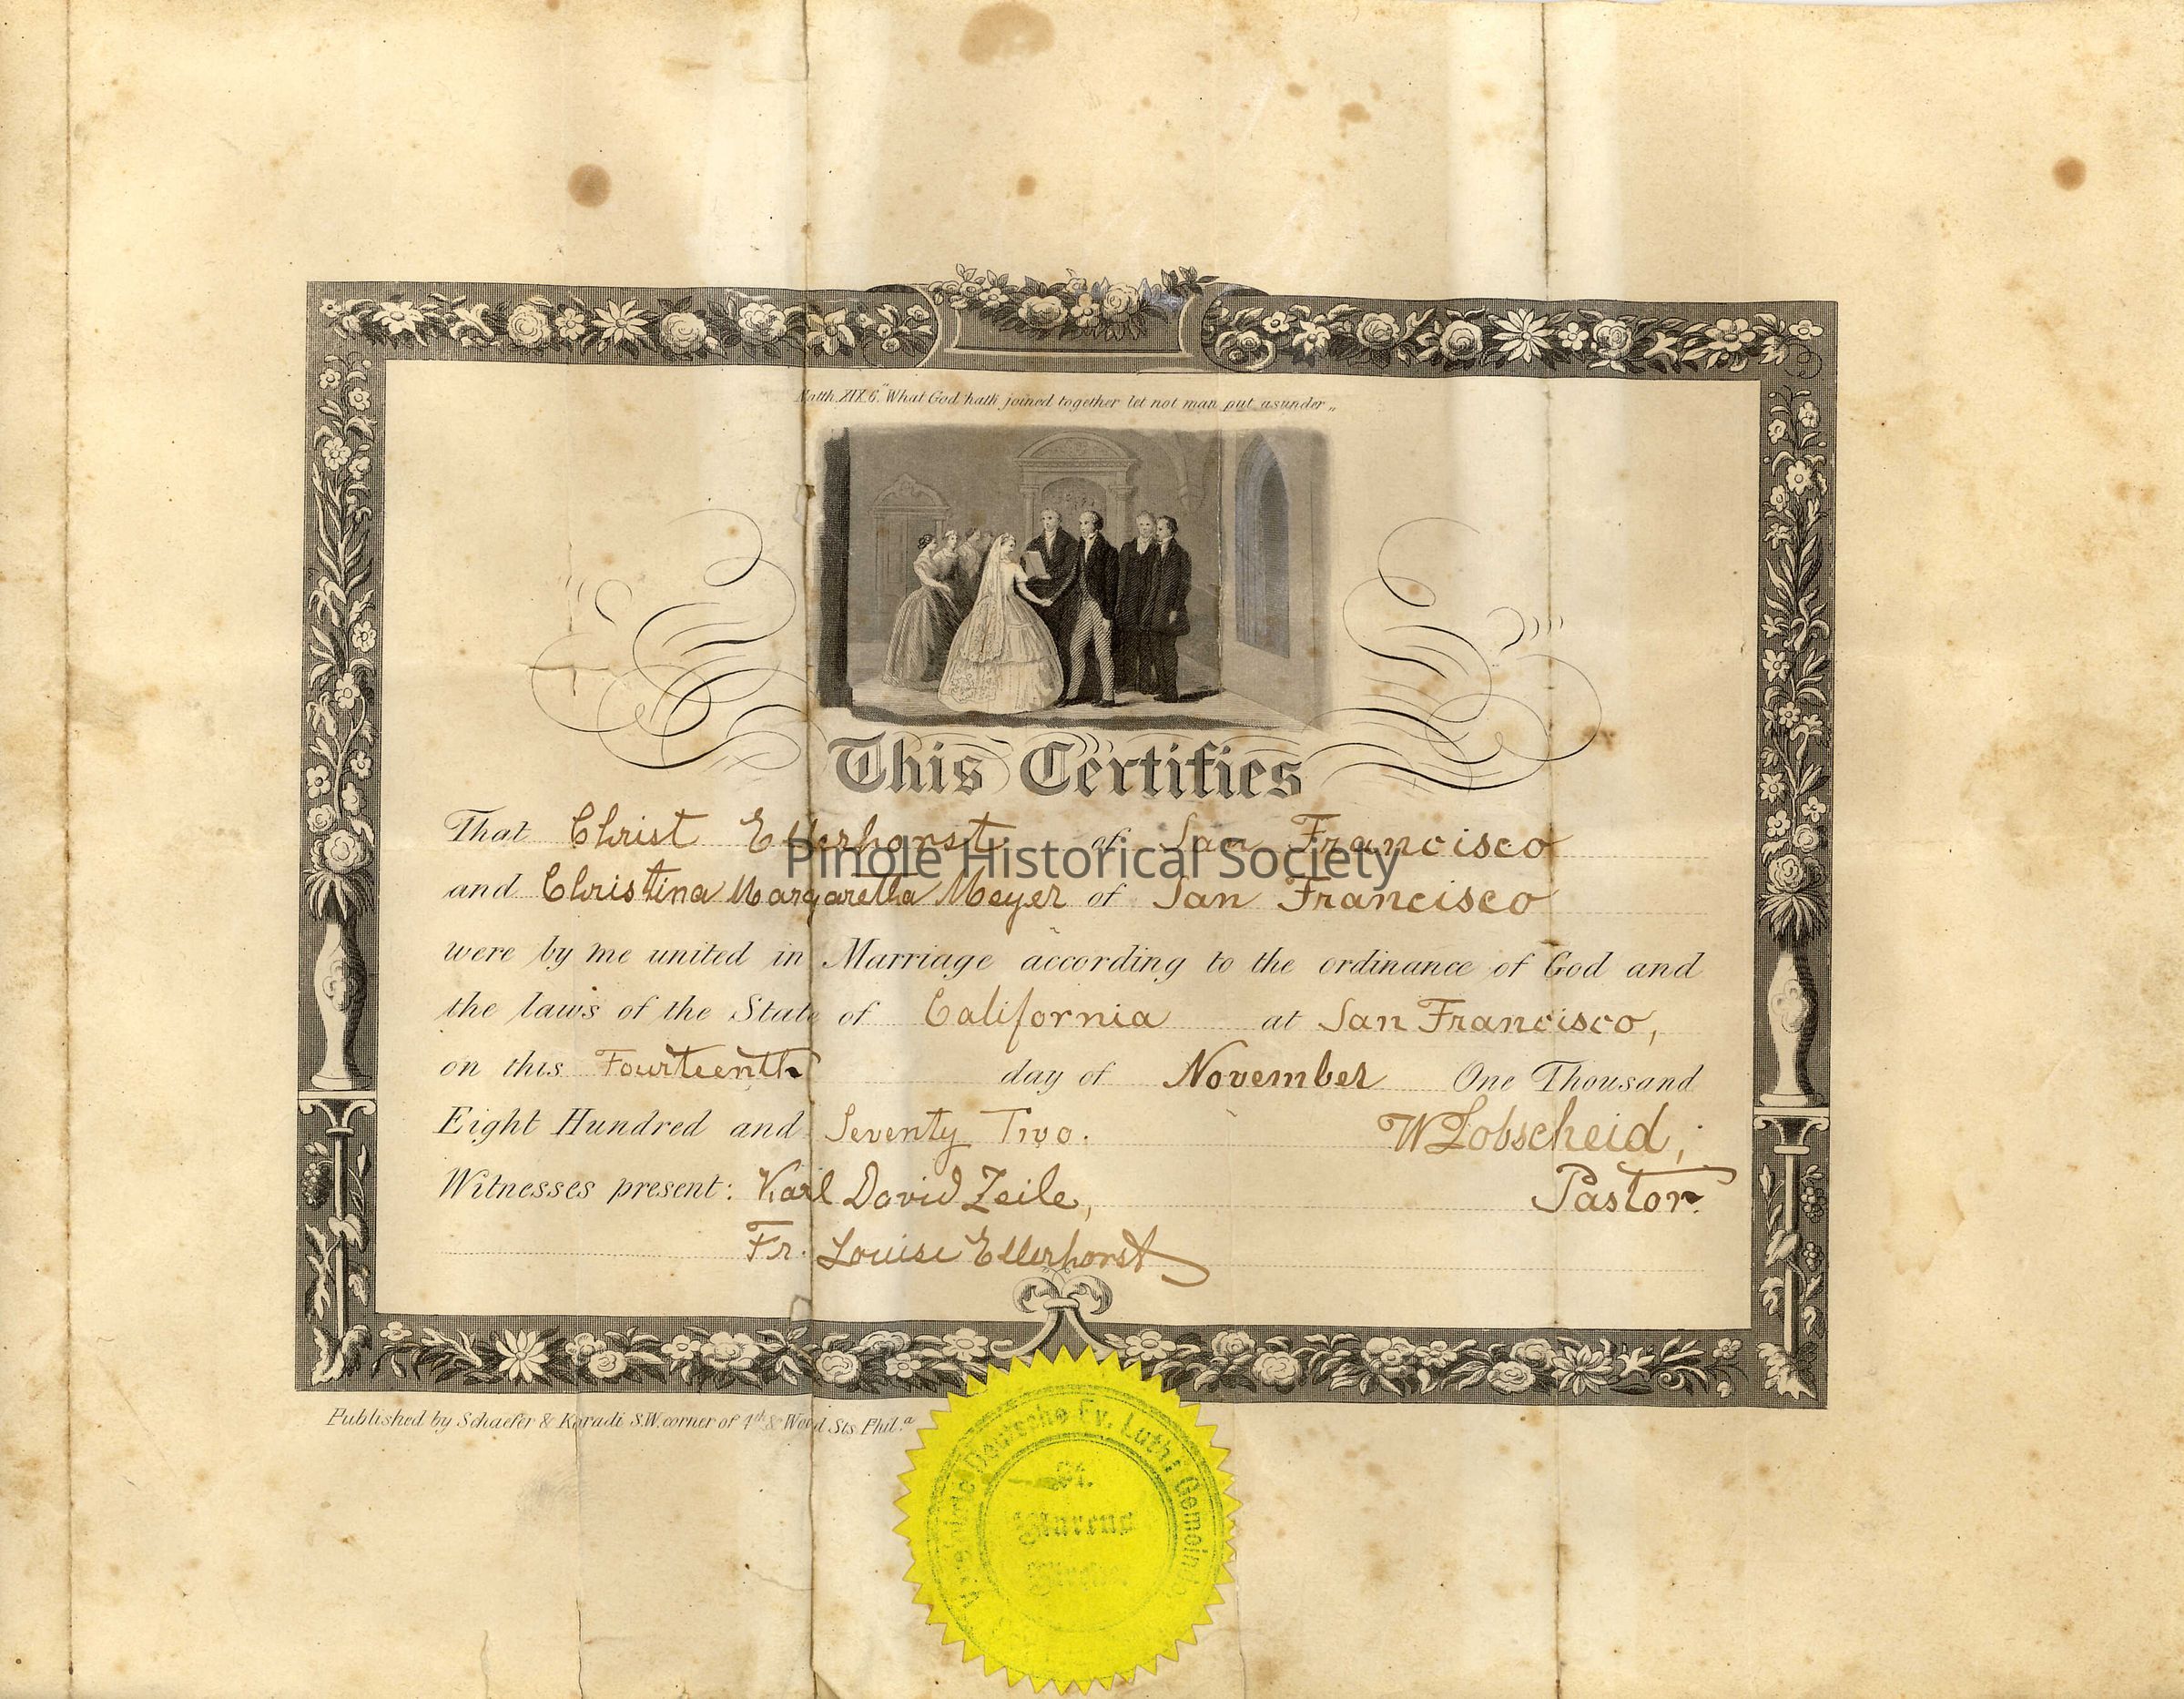 Matth. XIX. 6. "What God hath joined together let not man put asunder„
This Certifies
That Christ Ellerhorst of San Francisco
Pinole Historical Society
and Christina Margaretha Meyer of San Francisco
were by me united in Marriage according to the ordinance of God and
the laws of the State of California at San Francisco,
on this Fourteenth day of November One Thousand
Eight Hundred and Seventy Two. W Lobscheid,
Witnesses present: Karl David Zeile, Pastor.
Fr. Louise Ellerhorst
Published by Schaefer & Koradi S.W. corner of 4th & Wood Sts. Phil.a
Deutsche Ev. Luth. Gemeinde
St.
Marcus